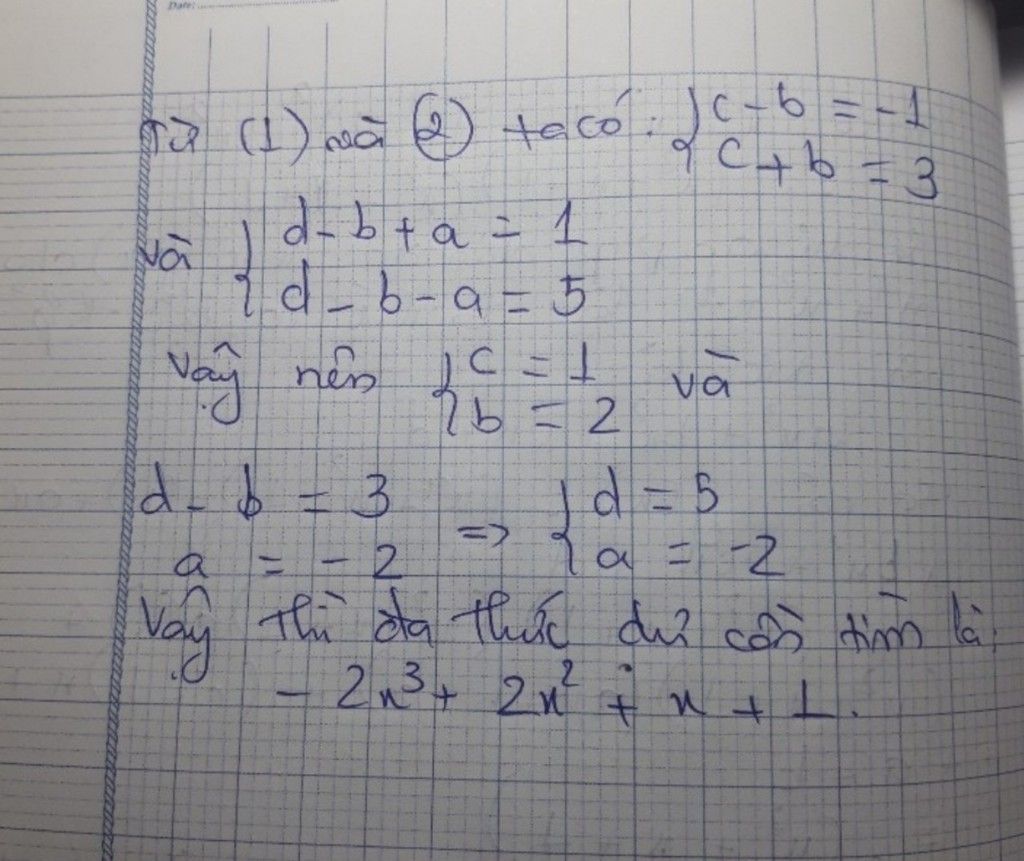 Date:
Từ (1) và (2) ta có: { c - b = -1
c + b = 3
và { d - b + a = 1
d - b - a = 5
Vậy nên { c = 1 và
b = 2
d - b = 3 => { d = 5
a = -2 a = -2
Vậy thì đa thức dư cần tìm là:
- 2x³ + 2x² + x + 1.